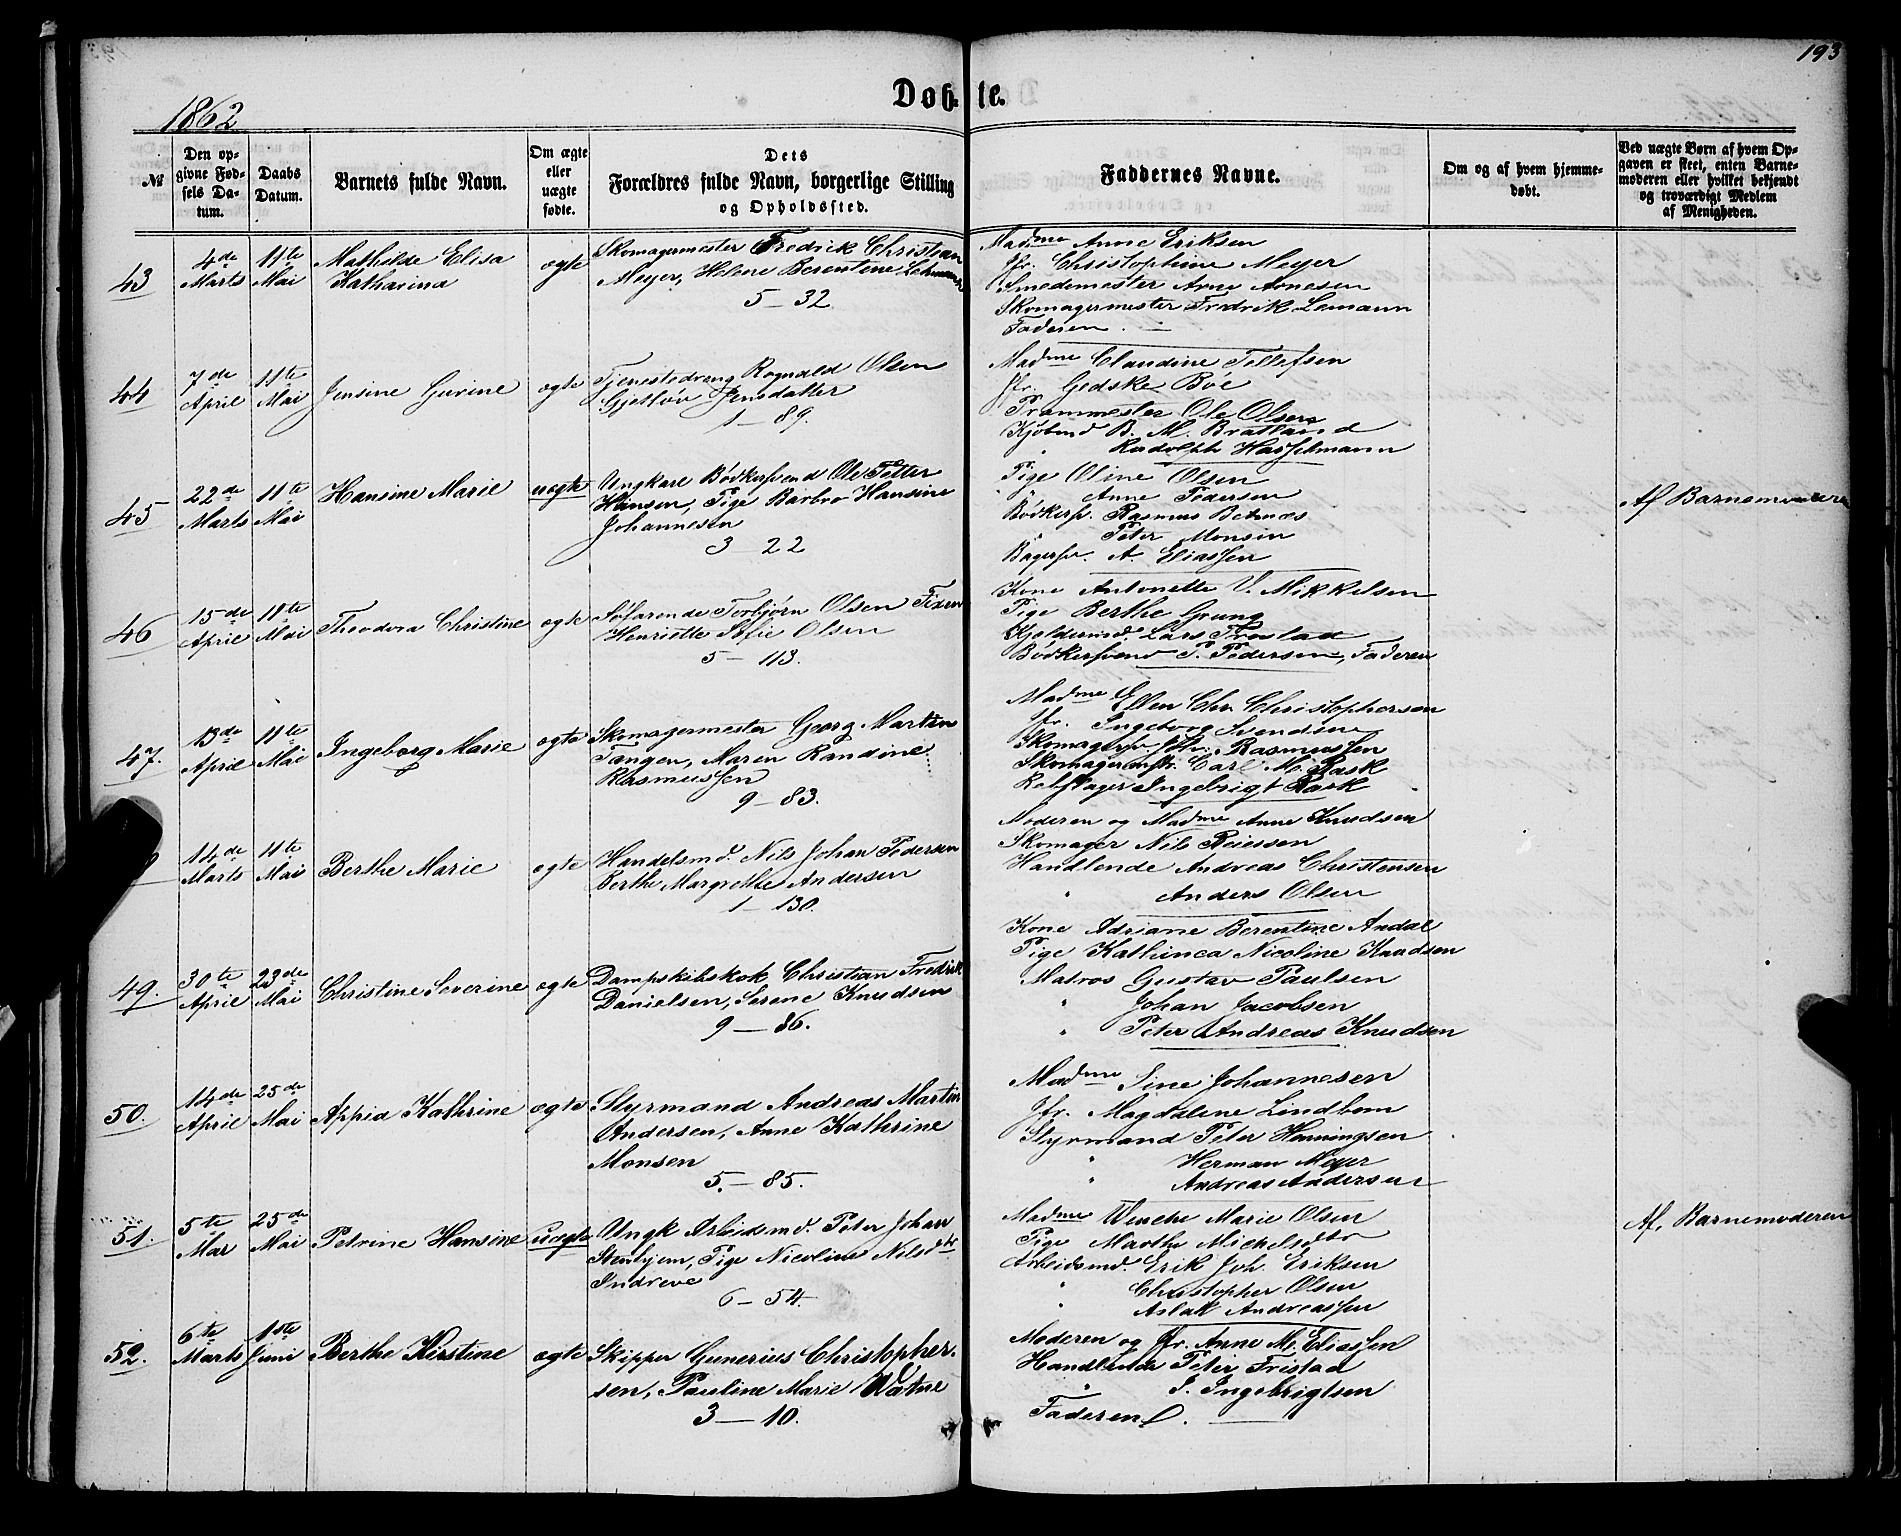 193
Døbte.
1862
№
Den opgivne Fødsels Datum.
Daabs Datum.
Barnets fulde Navn.
Om ægte eller uægte fødte.
Dets Forældres fulde Navn, borgerlige Stilling og Opholdssted.
Faddernes Navne.
Om og af hvem hjemmedøbt.
Ved uægte Børn af hvem Opgaven er skeet, enten Barnemoderen eller hvilket bekjendt og troværdigt Medlem af Menigheden.
43 4de Marts 11te Mai Mathilde Elisa Katharina ægte
Skomagermester Fredrik Christian
Meyer, Helene Berentine Lehmann
5 — 32
Madme Anne Eriksen
Jfr. Christophine Meyer
Smedemester Arne Arnesen
Skomagermester Fredrik Lemann
Faderen.
44 7de April 11te Mai Jensine Gurine ægte
Tjenestedreng Rognald Olsen
Gjetlöv Jensdatter
1 — 89.
Madme Claudine Tellefsen
Jfr. Gedske Böe
Prammester Ole Olsen
Kjöbmd B. M. Bratland
" Rudolph Hasselmann
45 22de Marts 11te Mai Hansine Marie uægte
Ungkarl Bödkersvend Ole Petter
Hansen, Pige Barbro Hansine
Johannesen
3 — 22
Pige Oline Olsen
" Anne Pedersen
Bödkersv. Rasmus Betnæs
" Peter Monsen
Bagersv. A. Eliassen
Af Barnemoderen
46 15de April 11te Mai Theodora Christine ægte
Söfarende Torbjörn Olsen
Henriette Sofie Olsen
5 — 113.
Kone Antonette V. Mikkelsen
Pige Berthe Grung
Kjeldermd. Lars Frostad
Bödkersvend P. Pedersen, Faderen
47. 13de April 11te Mai Ingeborg Marie ægte
Skomagermester Georg Martin
Tangen, Maren Randine
Rasmussen
9 — 83.
Madme Ellen Chr. Christophersen
Jfr. Ingeborg Svendsen
Skomagersv. Joh. Rasmussen
Skomagermstr. Carl M. Rask
Rebslager Ingebrigt Rask
14de Marts 11te Mai Berthe Marie ægte
Handelsmd. Nils Johan Pedersen
Berthe Margrethe Andersen
1 — 130.
Moderen og Madme Anne Knudsen
Skomager Nils Reiessen
Handlende Andreas Christensen
" Anders Olsen
49. 30te April 23de Mai Christine Severine ægte
Dampskibskok Christian Fredrik
Danielsen, Serene Knudsen
9 — 86.
Kone Adriane Berentine Andal
Pige Kathinca Nicoline Knudsen
Matros Gustav Paulsen
" Johan Jacobsen
" Peter Andreas Knudsen
50. 14de April 25de Mai Appia Kathrine ægte
Styrmand Andreas Martin
Andersen, Anne Kathrine
Monsen
5. — 85.
Madme Sine Johannesen
Jfr. Magdalene Lindbom
Styrmand Peter Henningsen
" Herman Meyer
" Andreas Andersen
51. 5te Mar 25de Mai Petrine Hansine uægte
Ungk Arbeidsmd. Peter Johan
Stenhjem, Pige Nicoline Nilsdtr
Indreve
6 — 54.
Madme Wenche Marie Olsen
Pige Marthe Michelsdtr
Arbeidsmd. Erik Joh. Eriksen
" Christopher Olsen
" Aslak Andreassen
Af. Barnemoderen
52. 6te Marts 1ste Juni Berthe Kirstine ægte
Skipper Gunerius Christopher-
sen, Pauline Marie Watne
3 — 10.
Moderen og Jfr. Anne M. Eliassen
Handlende Peter Fristad
" I. Ingebrigtsen
Faderen.